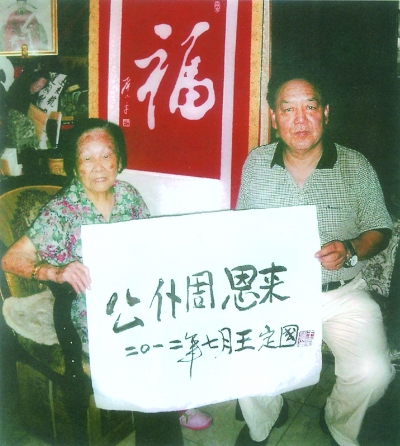 福
公仆周恩来
二〇一二年七月王定國